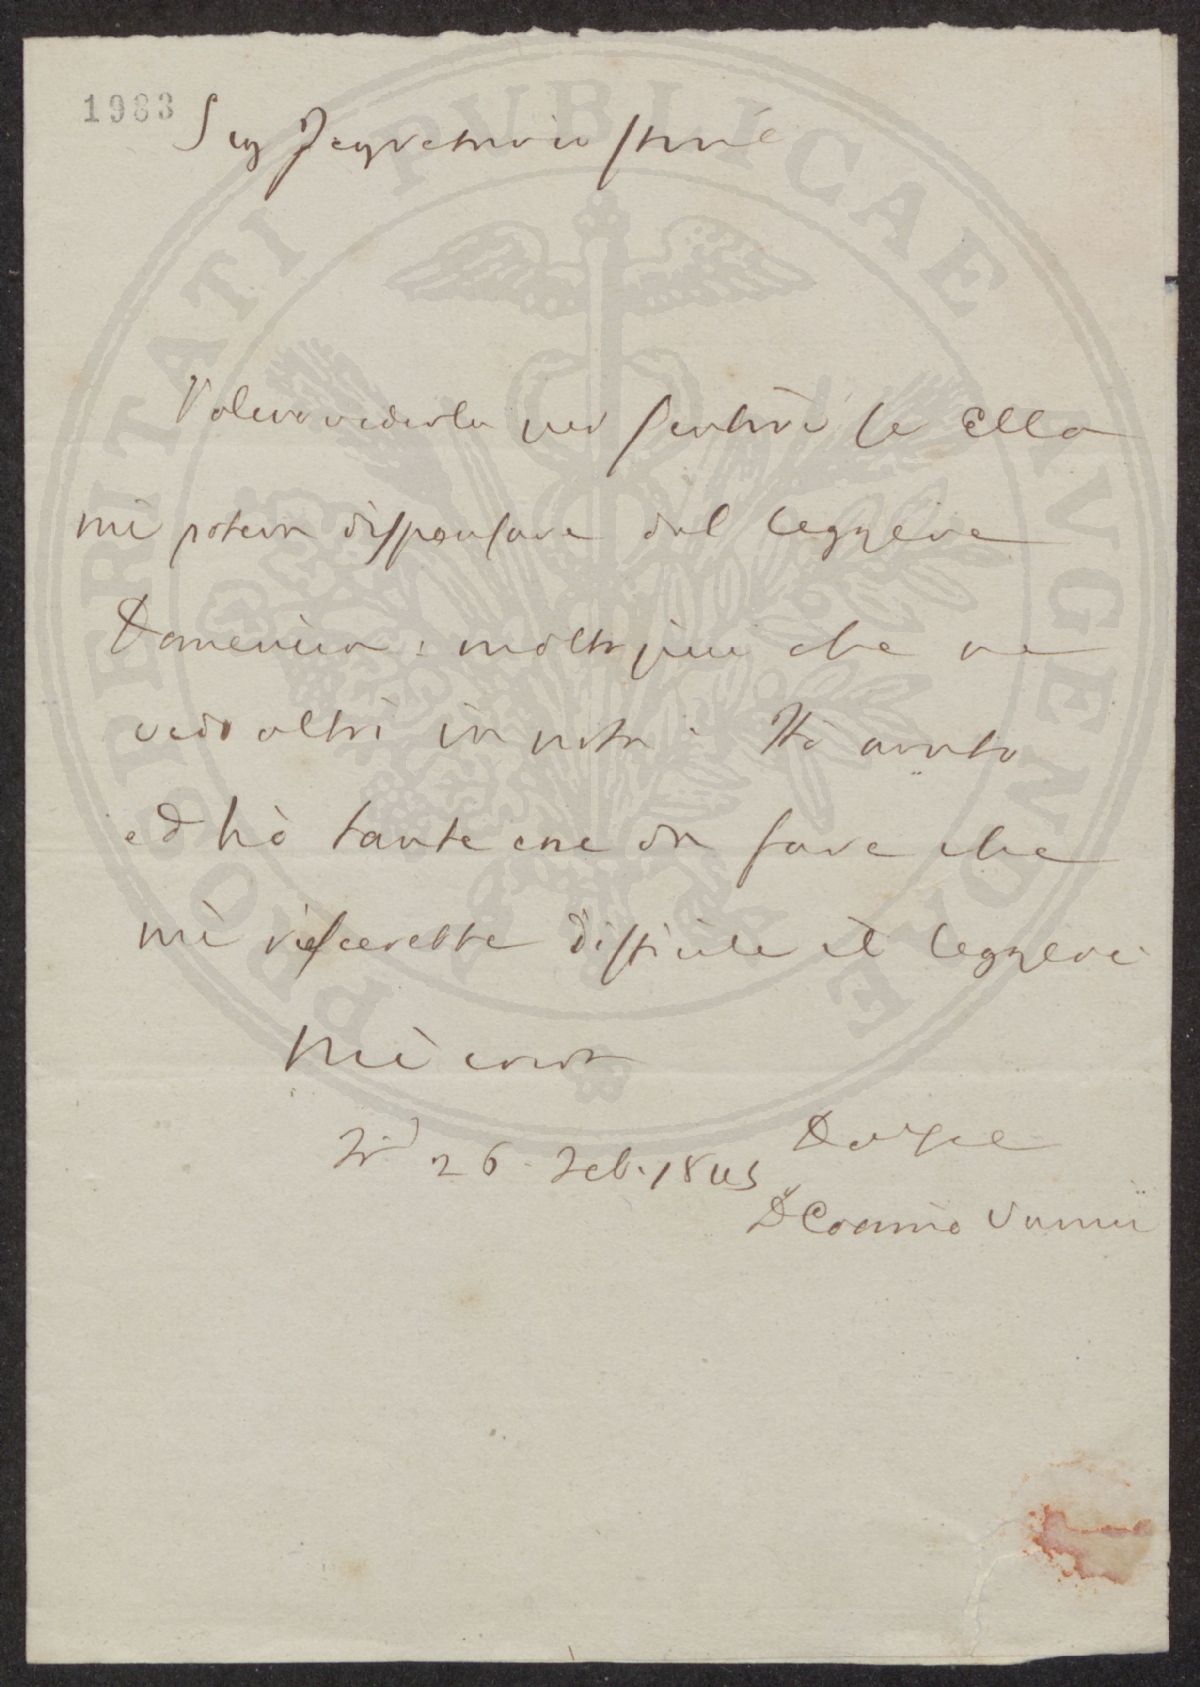 1983
Sig Segretario stimê
Volevo vederla per sentire se Ella
mi poteva dispensare dal leggere
Domenica: molto più che ne
vedo altri in nota. Hò avuto
ed hò tante cose da fare che
mi riescerebbe difficile il leggere.
Mi creda
26. Feb. 1843
D Cosimo Vannii
PROSPERITATI PVBLICAE AVGENDAE